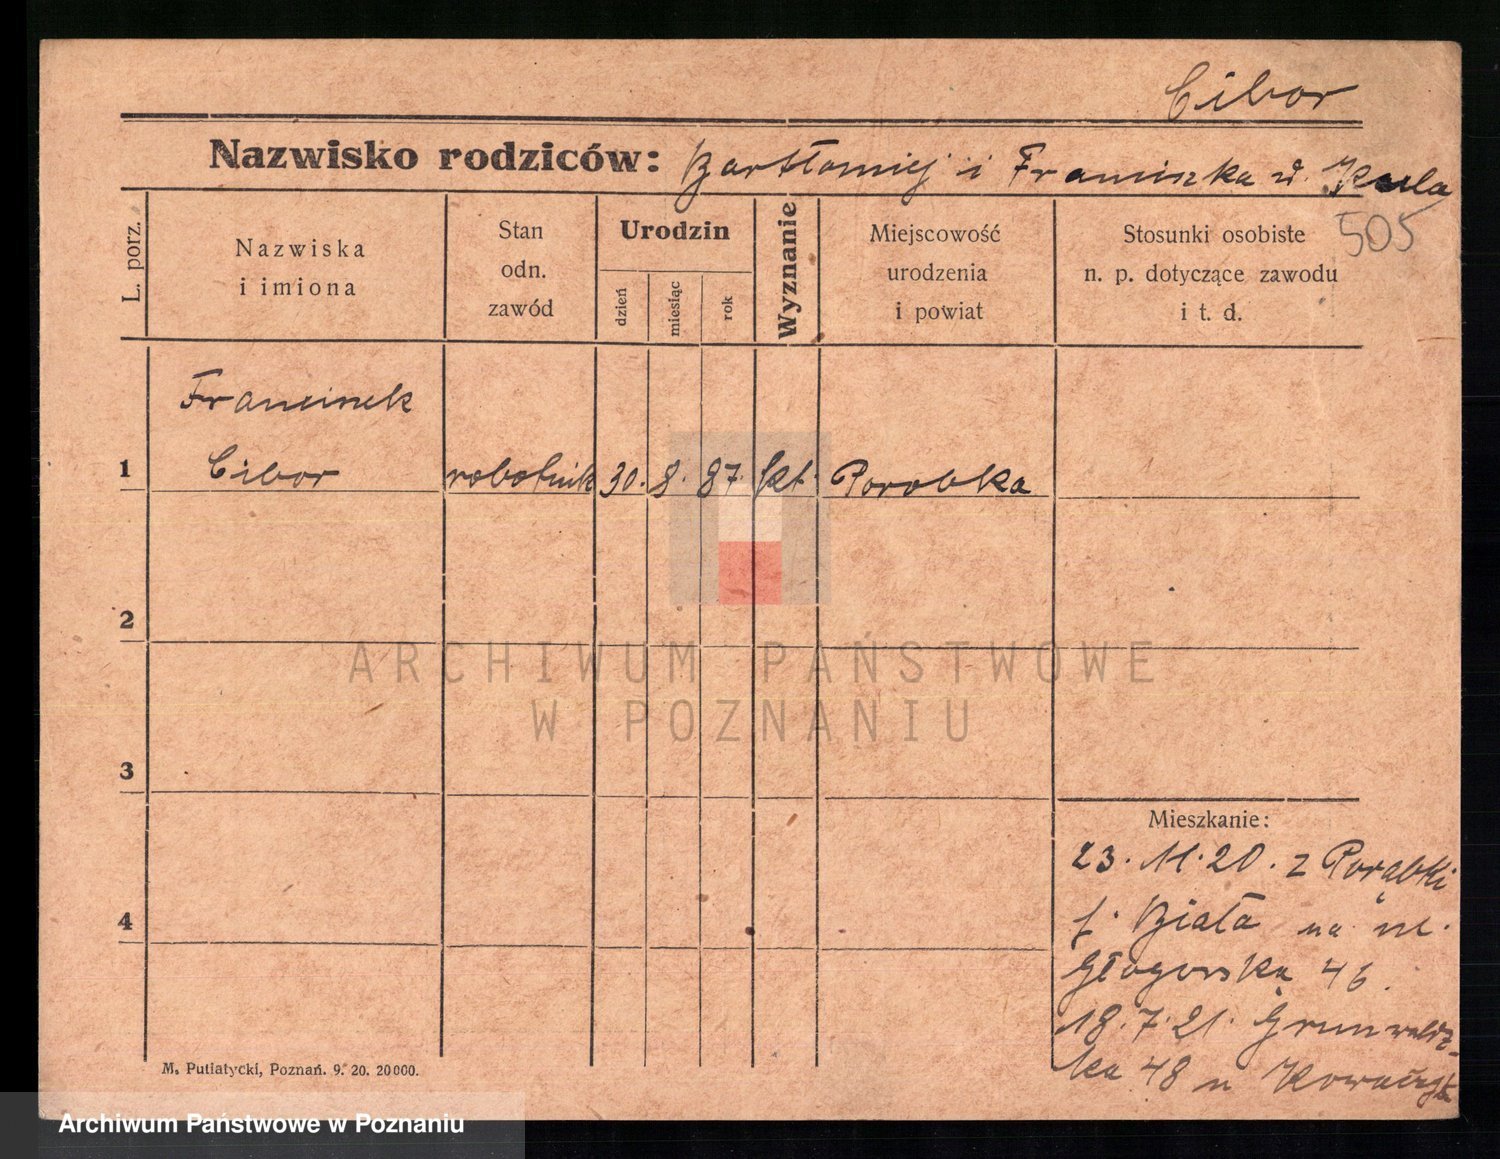 Cibor
Nazwisko rodziców: Bartłomiej i Franciszka d. Kula
505
L. porz.
Nazwiska
i imiona
Stan
odn.
zawód
Urodzin
dzień
miesiąc
rok
Wyznanie
Miejscowość
urodzenia
i powiat
Stosunki osobiste
n. p. dotyczące zawodu
i t. d.
Franciszek
1 Cibor robotnik 30. 8. 87. kt. Porobka
2
ARCHIWUM PAŃSTWOWE
W POZNANIU
3
Mieszkanie:
23. 11. 20. z Porąbki
4
f. Biała na ul.
Głogowską 46.
18. 7. 21. Grunwaldz-
ka 48 u
M. Putiatycki, Poznań. 9. 20. 20000.
Archiwum Państwowe w Poznaniu